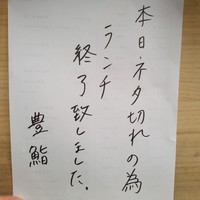 本日ネタ切れの為
ランチ
終了致しました。
豊鮨